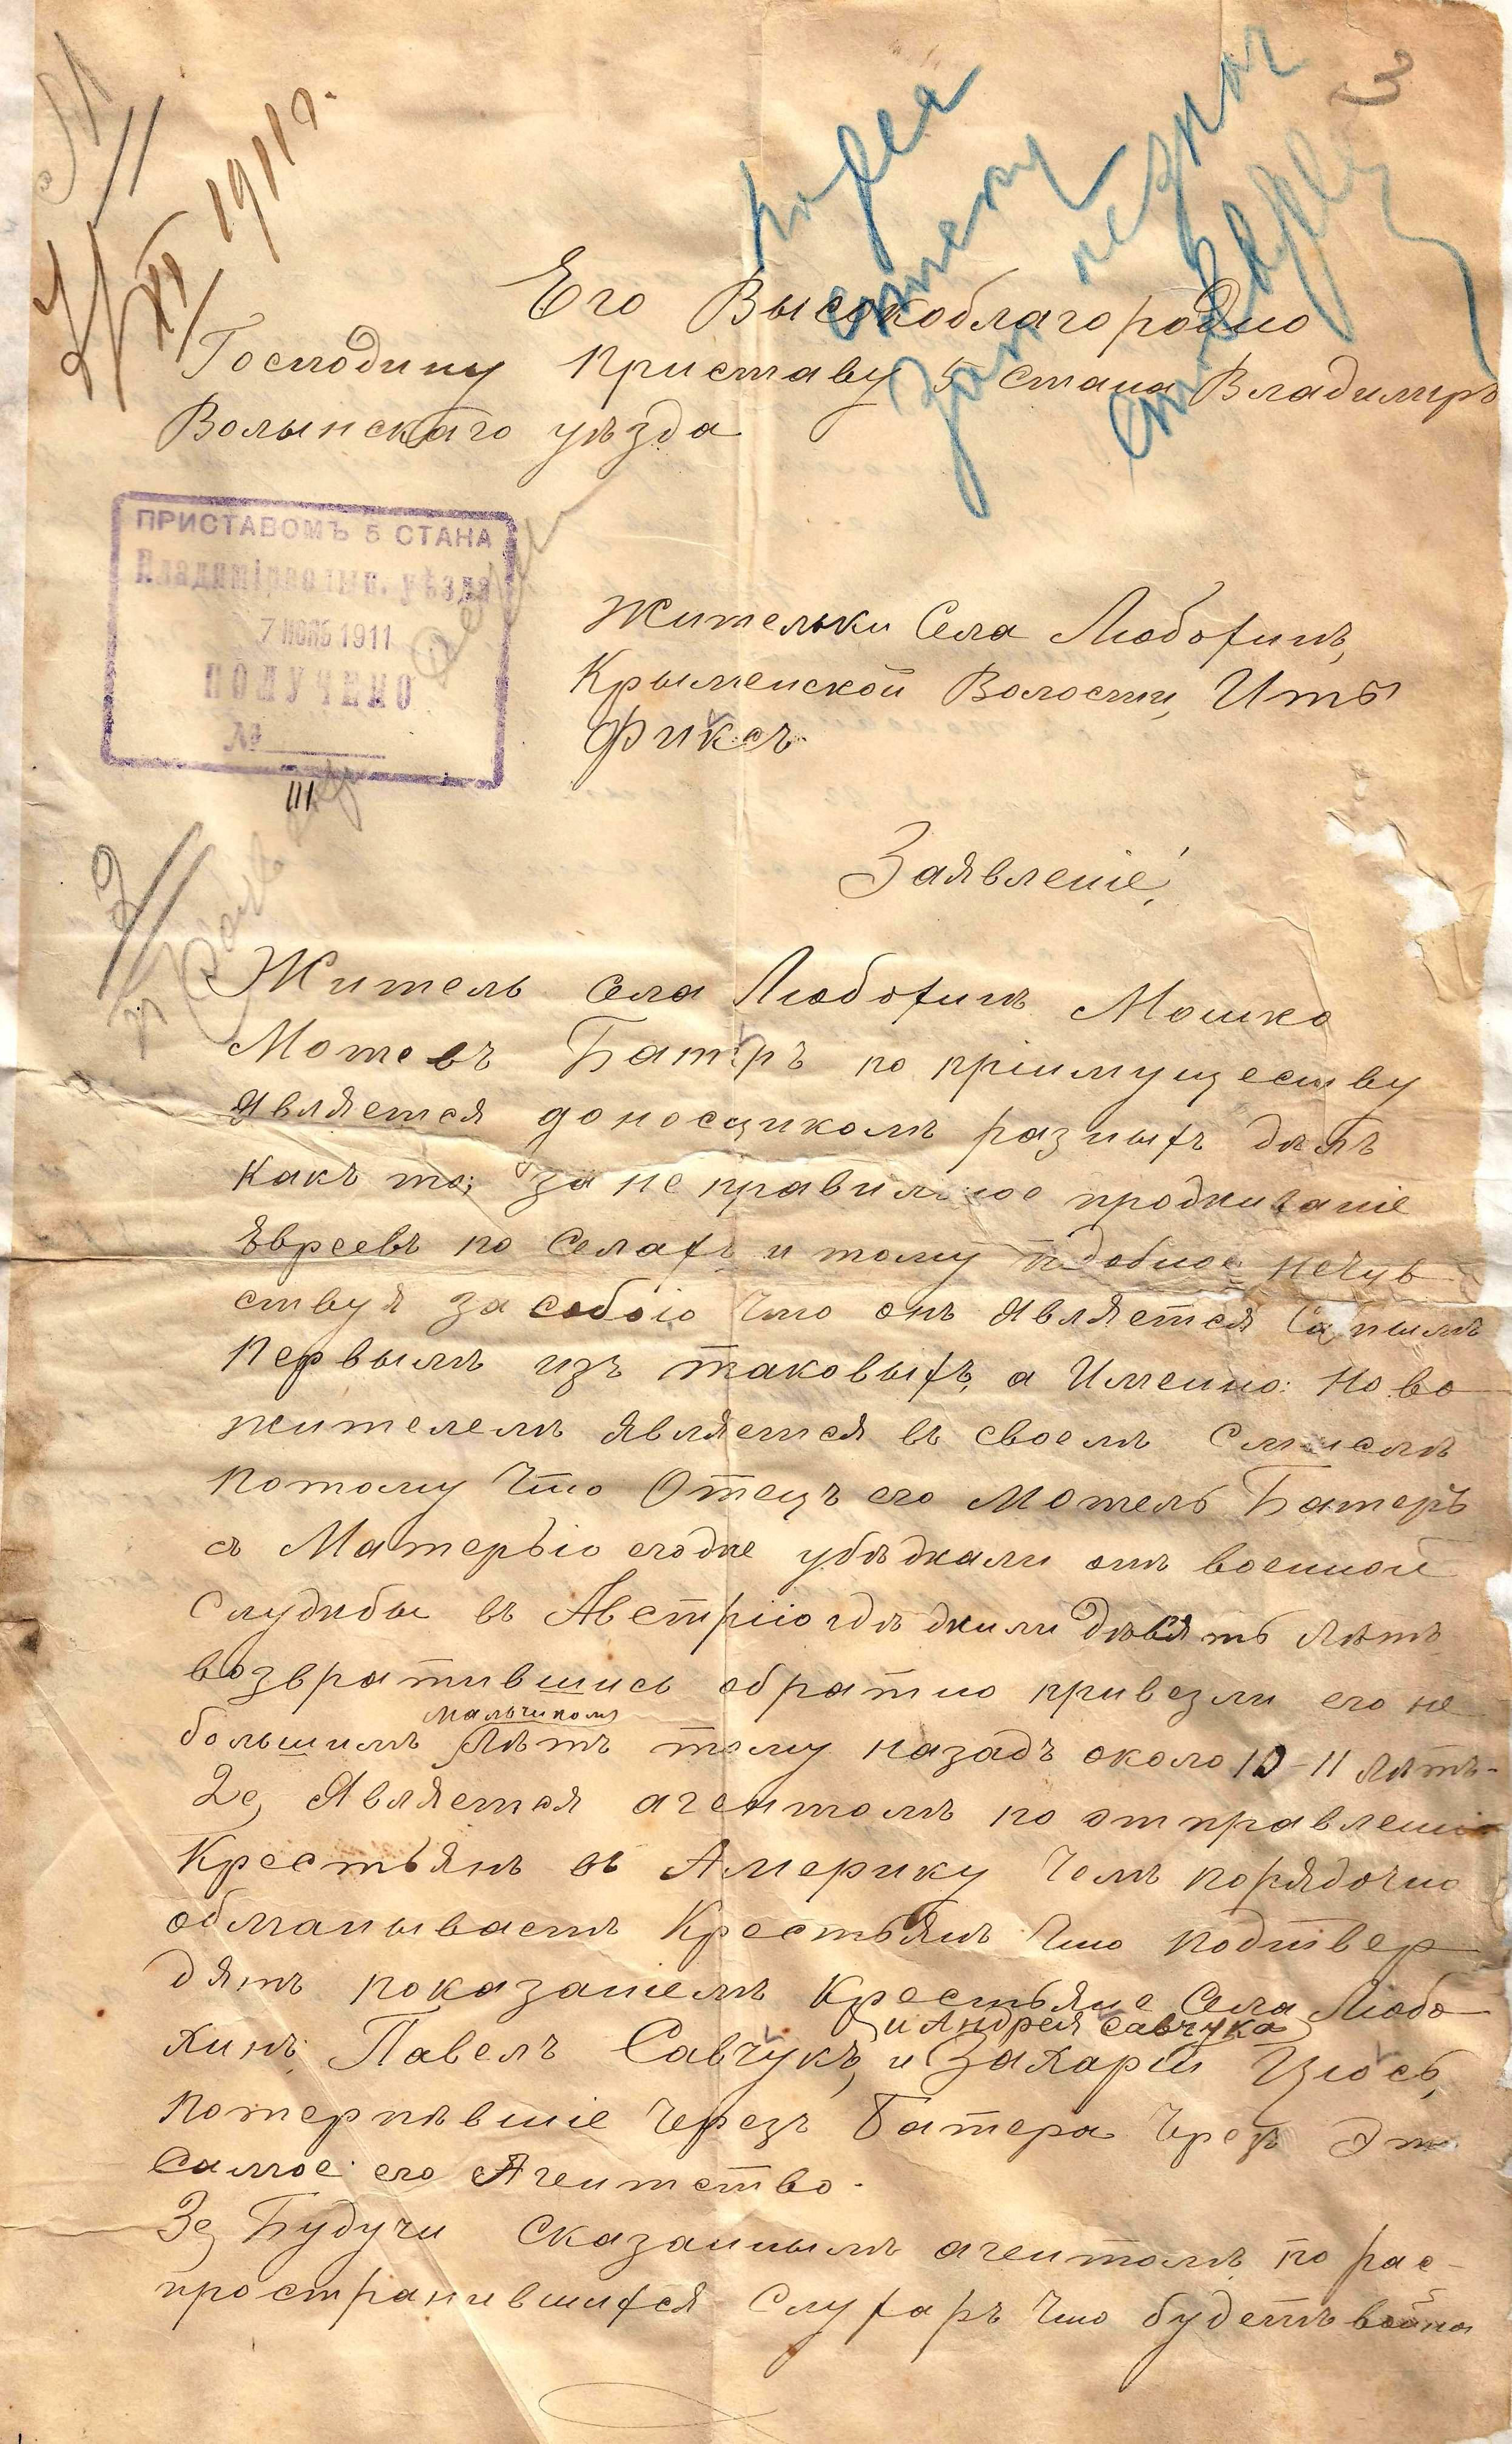 3
XI 1911 г.
Его Высокоблагородию
Господину Приставу 5 стана Владимиръ
Волынскаго уѣзда
ПРИСТАВОМЪ 5 СТАНА
Владимірволын. уѣзда
7 НОЯБ 1911
ПОЛУЧЕНО
№
Жительки Села Любохинъ,
Крыменской Волости, Иты
Фиксъ
Заявленіе!
Житель села Любохинъ Мошко
Мотевъ Батеръ по пріимуществу
является доносщикомъ разныхъ дѣлъ
какъ то; за не правильное проживаніе
Евреевъ по Селахъ и тому подобное нечув
ствуя за собою что онъ является Самымъ
Первымъ изъ таковыхъ, а Именно: Ново
жителемъ является въ своемъ Смыслѣ
Потому что Отецъ его Мотель Батеръ
съ Матерью егоже убѣжали отъ военной
Службы въ Австрію гдѣ жили Дѣвять лѣтъ
возвратившись обратно привезли его не
большимъ мальчикомъ лѣтъ тому назадъ около 10-11 лѣтъ-
2е, Является агентомъ по отправленію
Крестьянъ въ Америку чемъ порядочно
обманываетъ Крестьянъ что подтвер
дятъ показаніемъ Крестьяне Села Любо
и Андрея Савчука
хинъ: Павелъ Савчукъ, и Захарій Цюсь,
потерпѣвшіе черезъ Батера черезъ Это
Самое его Агентство.
3е, Будучи сказаннымъ агентомъ, по рас-
пространившихся Слухахъ что будетъ война